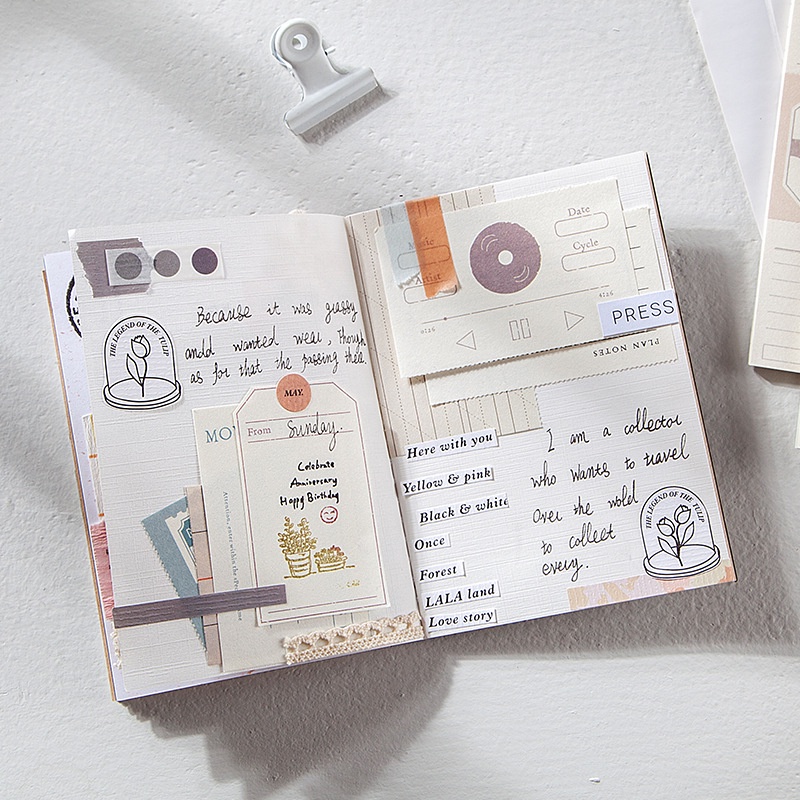 THE LEGEND OF THE TULIP
Because it was grassy
andd wanted wear, though
as for that the passing there.
MAY.
From Sunday.
Celebrate
Anniversary
Happy Birthday
MO
Attention, enter within the
Music
Artist
Date
Cycle
0:26
4:26
PRESS
PLAN NOTES
Here with you
Yellow & pink
Black & white
Once
Forest
LALA land
Love story
I am a collector
who wants to travel
Over the wold
to collect
every.
THE LEGEND OF THE TULIP